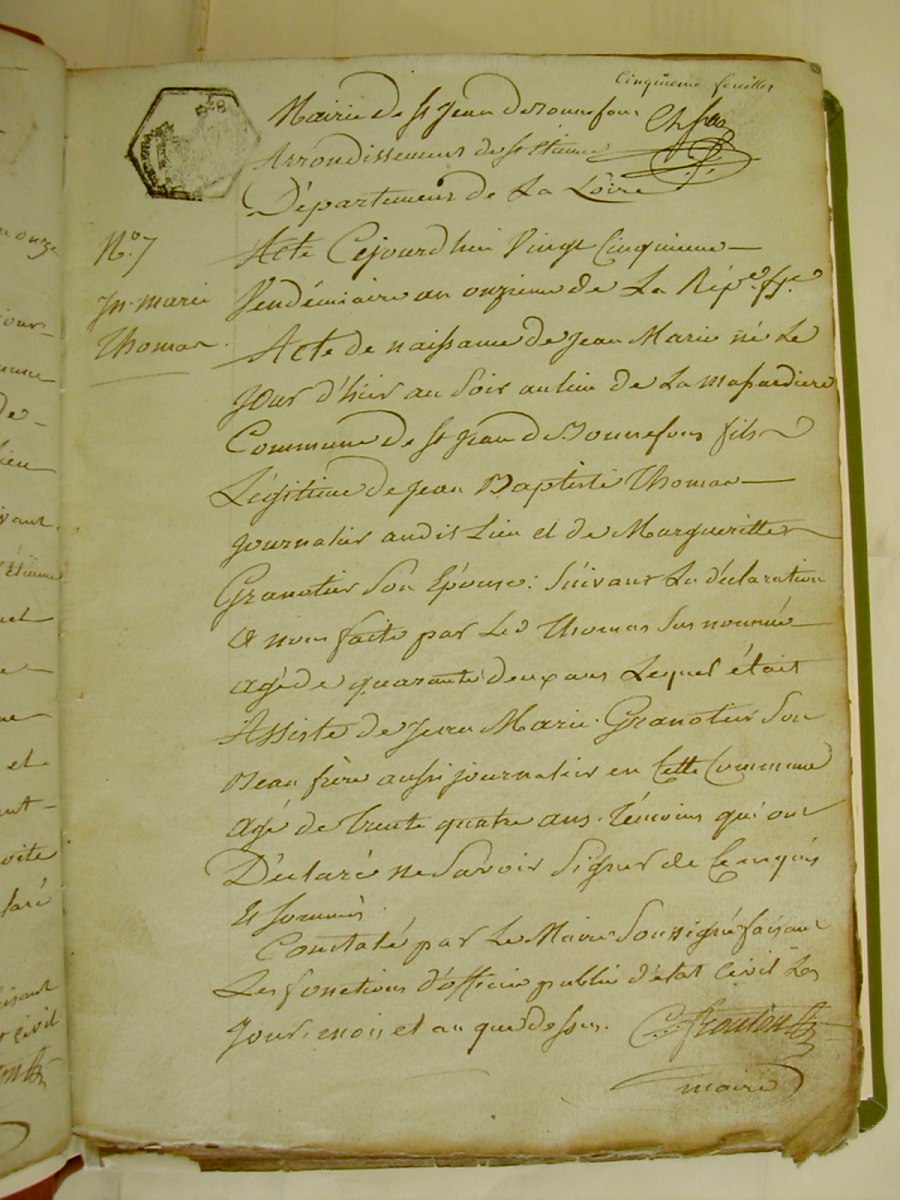 Cinquieme feuillet
Mairie de St Jean de Bonnefons
Arrondissement de St Etienne
Département de La Loire
N.º 7
Jn. marie
Thomas.
Acte Cejourdhui Vingt Cinquieme
Vendémiaire an onzieme de La Rép.e f.se
Acte de naissance de Jean Marie né Le
Jour d'hier au Soir au lieu de La
Commune de St Jean de Bonnefons fils
Légitime de Jean Baptiste Thomas
Journalier audit Lieu et de Margueritte
Granotier Son Epouse: Suivant La déclaration
a nous faite par Led Thomas Sus nommé
agé de quarante deux ans Lequel était
Assisté de Jean Marie Granotier Son
Beau frère aussi journalier en Cette Commune
agé de trente quatre ans. témoins qui ont
Déclaré ne Savoir Signer de Ce enquis
Et Sommés
Constaté par Le Maire Soussigné faisant
Les fonctions d'officier public d'état Civil Les
Jour, mois et an que dessus.
maire